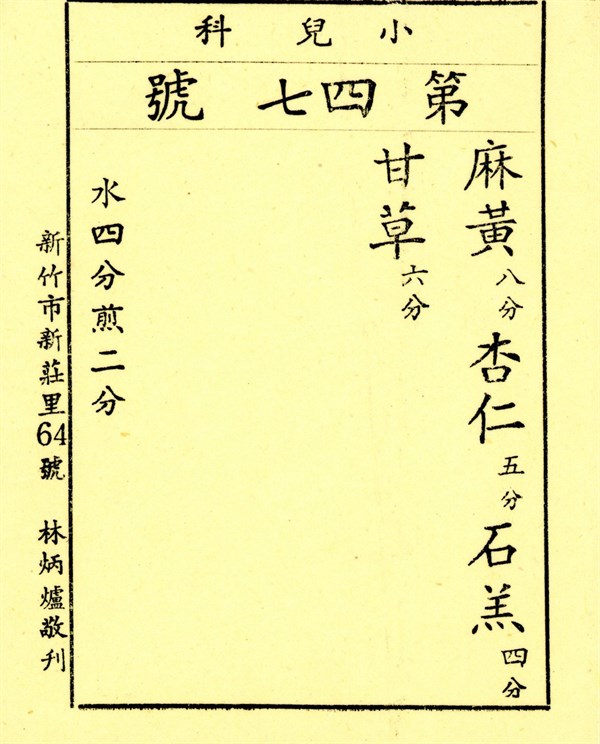 小兒科
第四七號
麻黃八分杏仁五分石羔四分
甘草六分
水四分煎二分
新竹市新莊里64號 林炳爐敬刊